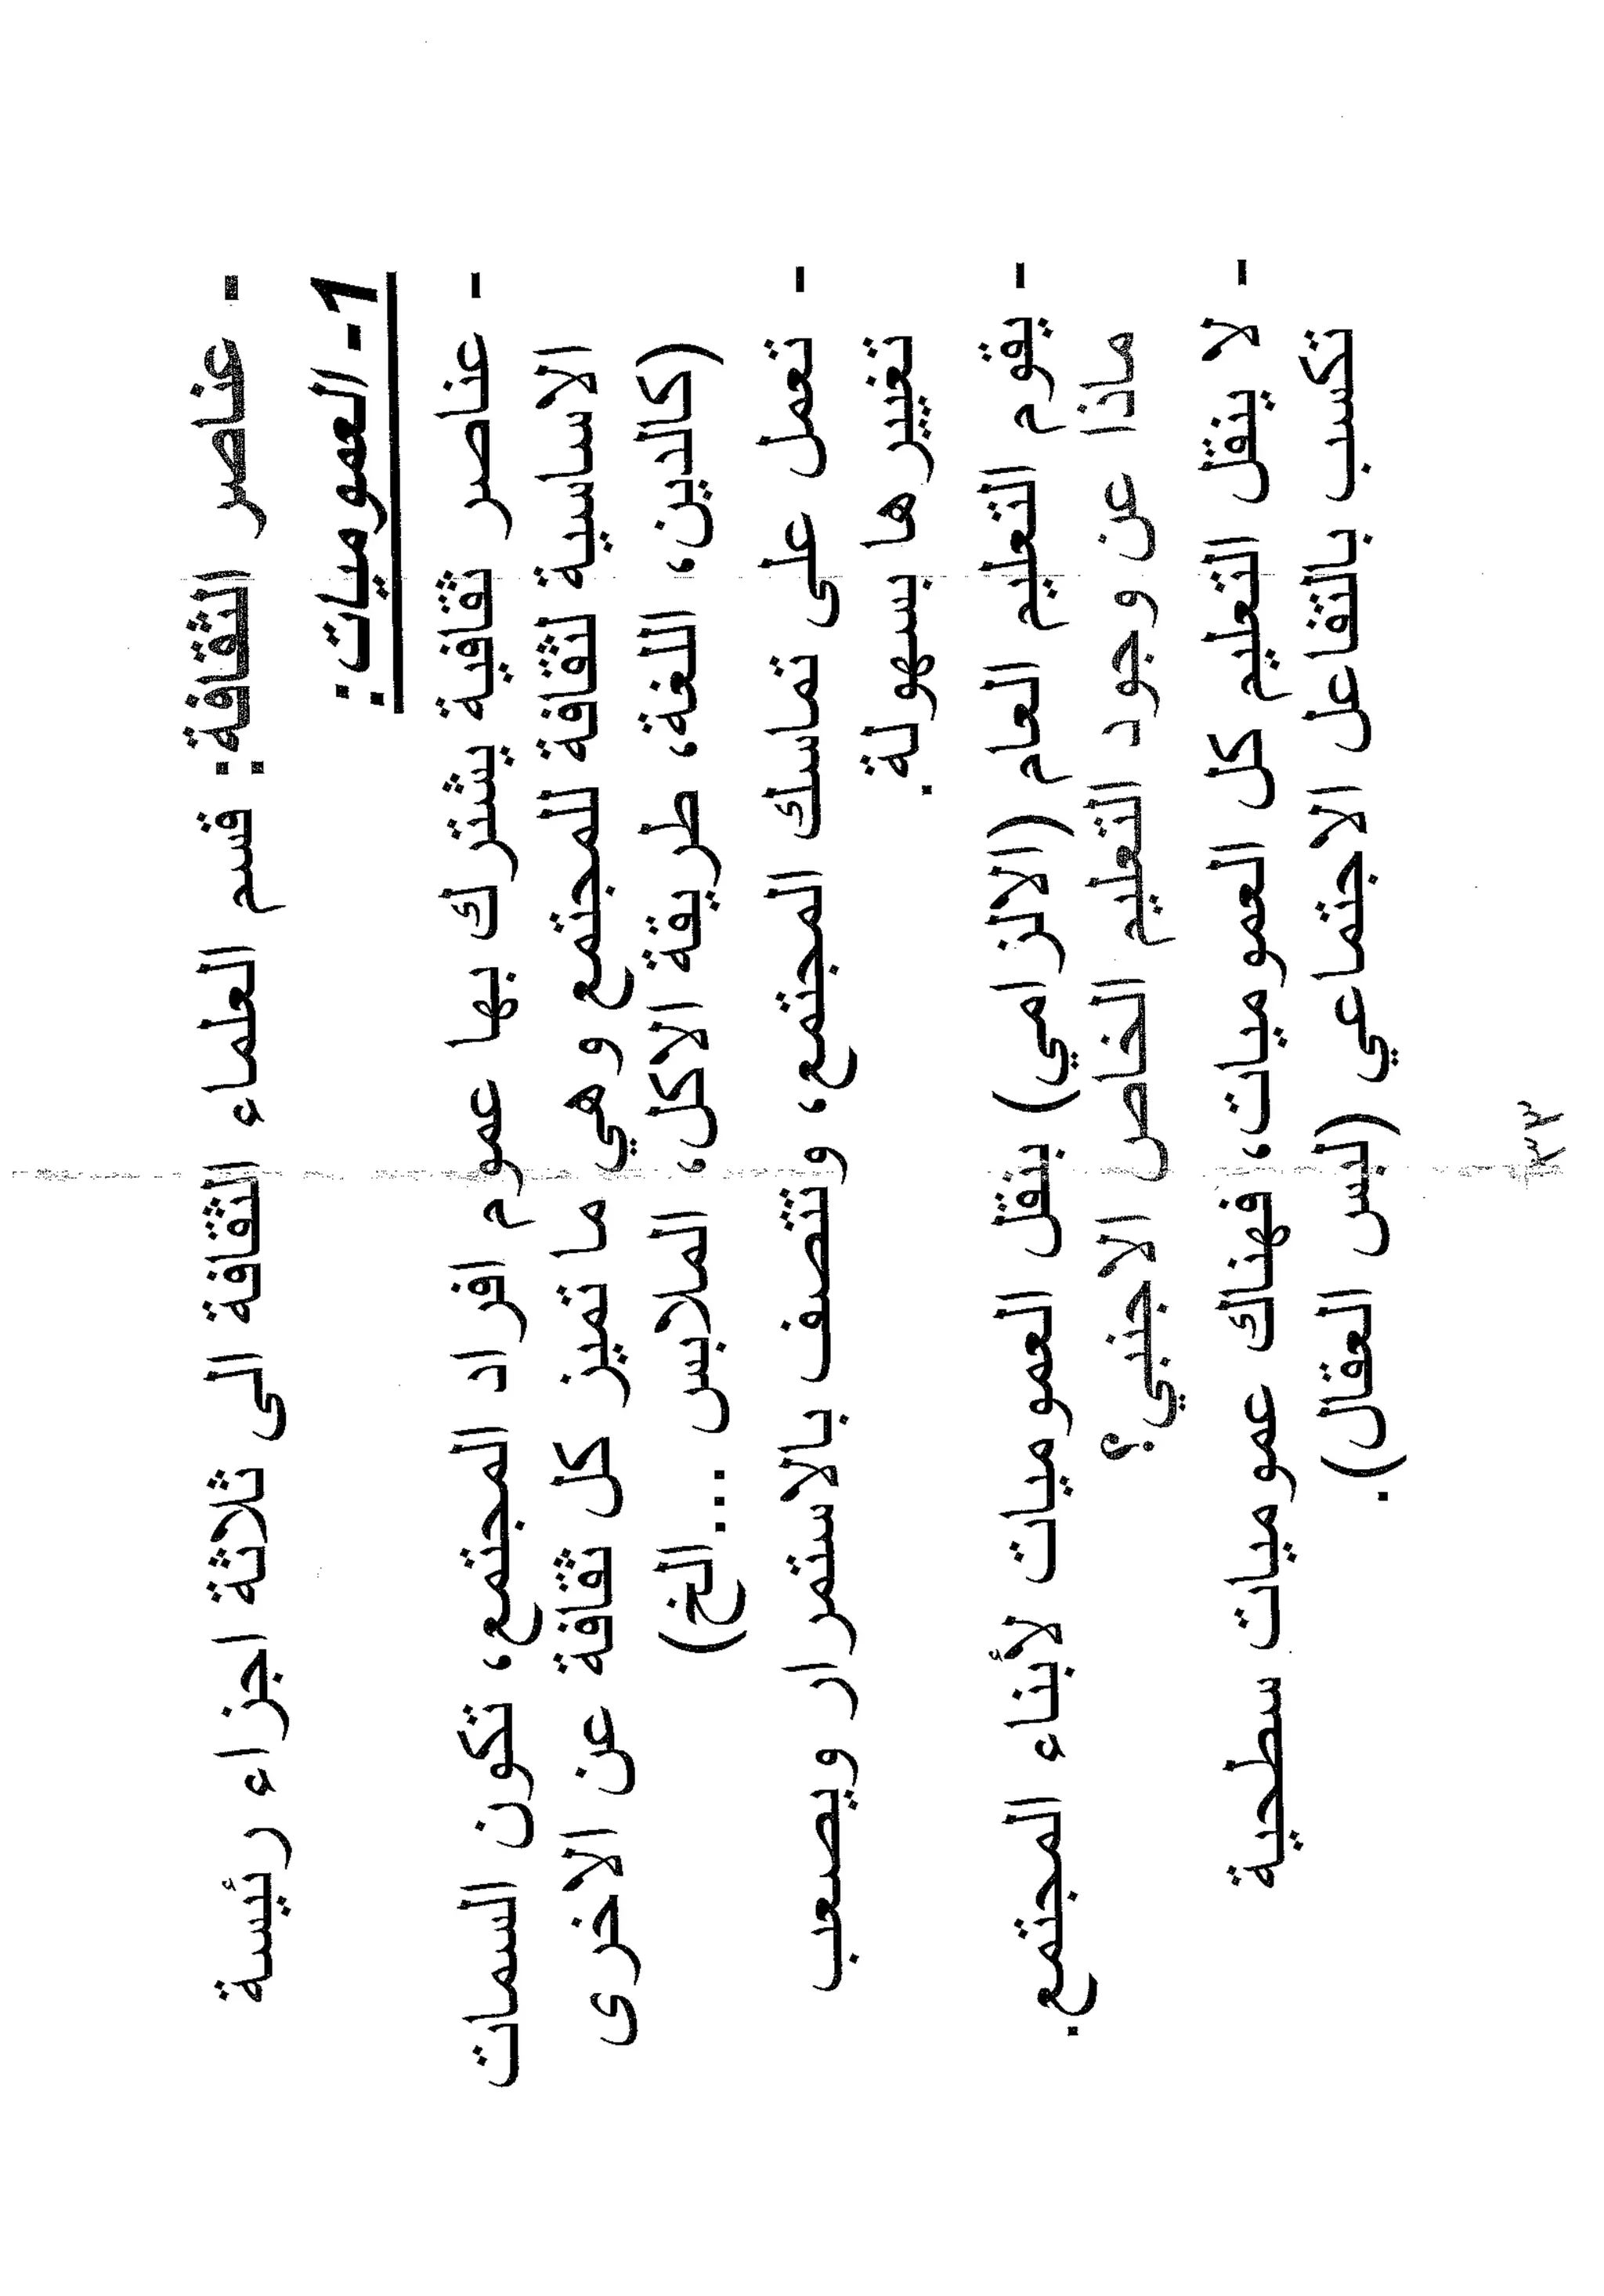 - عناصر الثقافة: قسم العلماء الثقافة الى ثلاثة اجزاء رئيسة
1- العموميات:
- عناصر ثقافية يشترك بها عموم افراد المجتمع، تكون السمات
الاساسية لثقافة للمجتمع وهي ما تميز كل ثقافة عن الاخرى
(كالدين، اللغة، طريقة الاكل، الملابس ...الخ)
- تعمل على تماسك المجتمع، وتتصف بالاستمرار ويصعب
تغييرها بسهولة.
- يقوم التعليم العام (الالزامي) بنقل العموميات لأبناء المجتمع.
ماذا عن وجود التعليم الخاص الاجنبي؟
- لا ينقل التعليم كل العموميات، فهناك عموميات سطحية
تكسب بالتفاعل الاجتماعي (لبس العقال).
٣٣